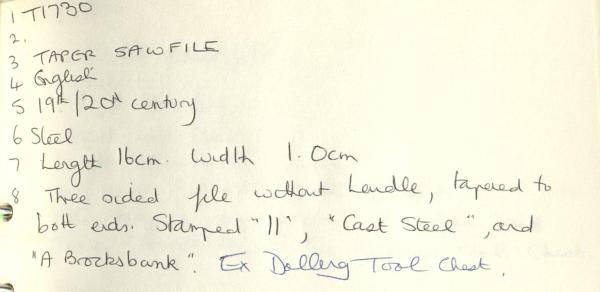 1 T1730
2.
3 TAPER SAW FILE
4 English
5 19th/20th century
6 Steel
7 Length 16cm. Width 1.0cm
8 Three sided file without handle, tapered to
both ends. Stamped "11", "Cast Steel", and
"A Brocksbank". Ex Dollery Tool Chest.